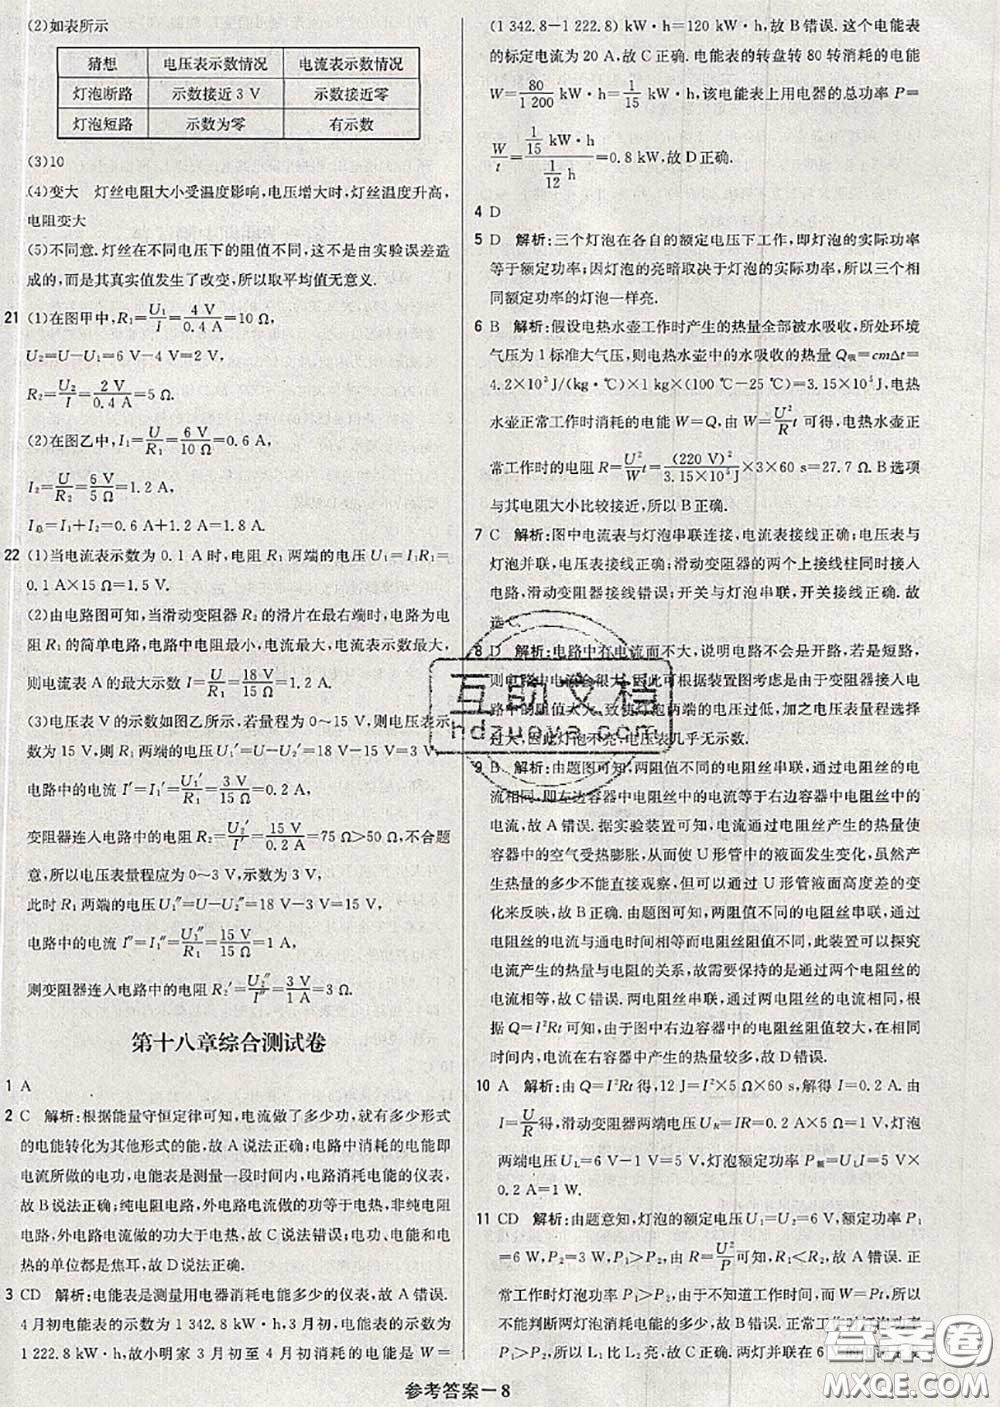 (2)如表所示
猜想 电压表示数情况 电流表示数情况
灯泡断路 示数接近 3 V 示数接近零
灯泡短路 示数为零 有示数
(3)10
(4)变大 灯丝电阻大小受温度影响,电压增大时,灯丝温度升高,
电阻变大
(5)不同意. 灯丝在不同电压下的阻值不同,这不是由实验误差造
成的,而是其真实值发生了改变,所以取平均值无意义.
21 (1)在图甲中,R₁=U₁/I=4 V/0.4 A=10 Ω,
U₂=U−U₁=6 V−4 V=2 V,
R₂=U₂/I=2 V/0.4 A=5 Ω.
(2)在图乙中,I₁=U/R₁=6 V/10 Ω=0.6 A,
I₂=U/R₂=6 V/5 Ω=1.2 A,
I总=I₁+I₂=0.6 A+1.2 A=1.8 A.
22 (1)当电流表示数为 0.1 A 时,电阻 R₁ 两端的电压 U₁=I₁R₁=
0.1 A×15 Ω=1.5 V.
(2)由电路图可知,当滑动变阻器 R₂ 的滑片在最右端时,电路为电
阻 R₁ 的简单电路,电路中电阻最小,电流最大,电流表示数最大,
则电流表 A 的最大示数 I=U/R₁=18 V/15 Ω=1.2 A.
(3)电压表 V 的示数如图乙所示,若量程为 0～15 V,则电压表示
数为 15 V,则 R₁ 两端的电压U₁′=U−U₂′=18 V−15 V=3 V.
电路中的电流 I′=U₁′/R₁=3 V/15 Ω=0.2 A.
变阻器连入电路中的电阻 R₂=U₂′/I′=15 V/0.2 A=75 Ω>50 Ω,不合题
意,所以电压表量程应为 0～3 V,示数为 3 V.
此时 R₁ 两端的电压U₁″=U−U₂″=18 V−3 V=15 V,
电路中的电流 I″=U₁″/R₁=15 V/15 Ω=1 A,
则变阻器连入电路中的电阻 R₂′=U₂″/I″=3 V/1 A=3 Ω.
第十八章综合测试卷
1 A
2 C 解析:根据能量守恒定律可知,电流做了多少功,就有多少形式
的电能转化为其他形式的能,故 A 说法正确;电路中消耗的电能即
电流所做的电功,电能表是测量一段时间内,电路消耗电能的仪表,
故 B 说法正确;纯电阻电路,外电路电流做的功等于电热,非纯电阻
电路,外电路电流做的功大于电热,故 C 说法错误;电功、电能和电
热的单位都是焦耳,故 D 说法正确.
3 CD 解析:电能表是测量用电器消耗电能多少的仪表,故 A 错误.
4 月初电能表的示数为 1 342.8 kW·h,3 月初电能表的示数为
1 222.8 kW·h,故小明家 3 月初至 4 月初消耗的电能是 W=
(1 342.8−1 222.8) kW·h=120 kW·h,故 B 错误. 这个电能表
的标定电流为 20 A,故 C 正确. 电能表的转盘转 80 转消耗的电能
W=80/1 200 kW·h=1/15 kW·h,该电能表上用电器的总功率 P=
W/t=(1/15 kW·h)/(1/12 h)=0.8 kW,故 D 正确.
4 D
5 D 解析:三个灯泡在各自的额定电压下工作,即灯泡的实际功率
等于额定功率;因灯泡的亮暗取决于灯泡的实际功率,所以三个相
同额定功率的灯泡一样亮.
6 B 解析:假设电热水壶工作时产生的热量全部被水吸收,所处环境
气压为 1 标准大气压,则电热水壶中的水吸收的热量 Q吸=cmΔt=
4.2×10³ J/(kg·℃)×1 kg×(100 ℃−25 ℃)=3.15×10⁵ J,电热
水壶正常工作时消耗的电能 W=Q,由 W=U²/R t 可得,电热水壶正
常工作时的电阻 R=U²/W t=(220 V)²/3.15×10⁵ J×3×60 s=27.7 Ω. B 选项
与其电阻大小比较接近,所以 B 正确.
7 C 解析:图中电流表与灯泡串联连接,电流表接线正确;电压表与
灯泡并联,电压表接线正确;滑动变阻器的两个上接线柱同时接入
电路,滑动变阻器接线错误;开关与灯泡串联,开关接线正确. 故
选 C.
8 D 解析:电路中有电流而不大,说明电路不会是开路,若是短路,
则电路中电流会很大. 因此可根据装置图考虑是由于变阻器接入电
路中的阻值太大,致使灯泡两端的电压过低,加之电压表量程选择
过大,因此灯泡不亮,电压表几乎无示数.
9 B 解析:由题图可知,两阻值不同的电阻丝串联,通过电阻丝的电
流相同,即左边容器中电阻丝的电流等于右边容器中电阻丝中的
电流,故 A 错误. 据实验装置可知,电流通过电阻丝产生的热量使
容器中的空气受热膨胀,从而使 U 形管中的液面发生变化,虽然产
生热量的多少不能直接观察,但可以通过 U 形管液面高度差的变
化来反映,故 B 正确. 由题图可知,两阻值不同的电阻丝串联,通过
电阻丝的电流与通电时间相等而电阻丝阻值不同,此装置可以探究
电流产生的热量与电阻的关系,故需要保持的是通过两个电阻丝的
电流相等,故 C 错误. 两电阻丝串联,通过两电阻丝的电流相同,根
据 Q=I²Rt 可知,由于图中右边容器中的电阻丝阻值较大,在相同
时间内,电流在右容器中产生的热量较多,故 D 错误.
10 A 解析:由 Q=I²Rt 得,12 J=I²×5 Ω×60 s,解得 I=0.2 A. 由
I=U/R 得,滑动变阻器两端电压 U_R=IR=0.2 A×5 Ω=1 V,灯泡
两端电压 U_L=6 V−1 V=5 V,灯泡额定功率 P额=U_L I=5 V×
0.2 A=1 W.
11 CD 解析:由题意知,灯泡的额定电压 U₁=U₂=6 V,额定功率 P₁
=6 W,P₂=3 W,P₁>P₂,由 R=U²/P可知,R₁<R₂,故 A 错误. 正
常工作时灯泡功率 P₁>P₂,由于不知道工作时间,而 W=Pt,所以
不能判断两灯泡消耗电能的多少,故 B 错误. 正常工作时灯泡功率
P₁>P₂,所以 L₁ 比 L₂ 更亮,故 C 正确. 两灯并联在 6
参考答案—8
互助文档
hdzuoye.com
答案圈
MXQE.COM